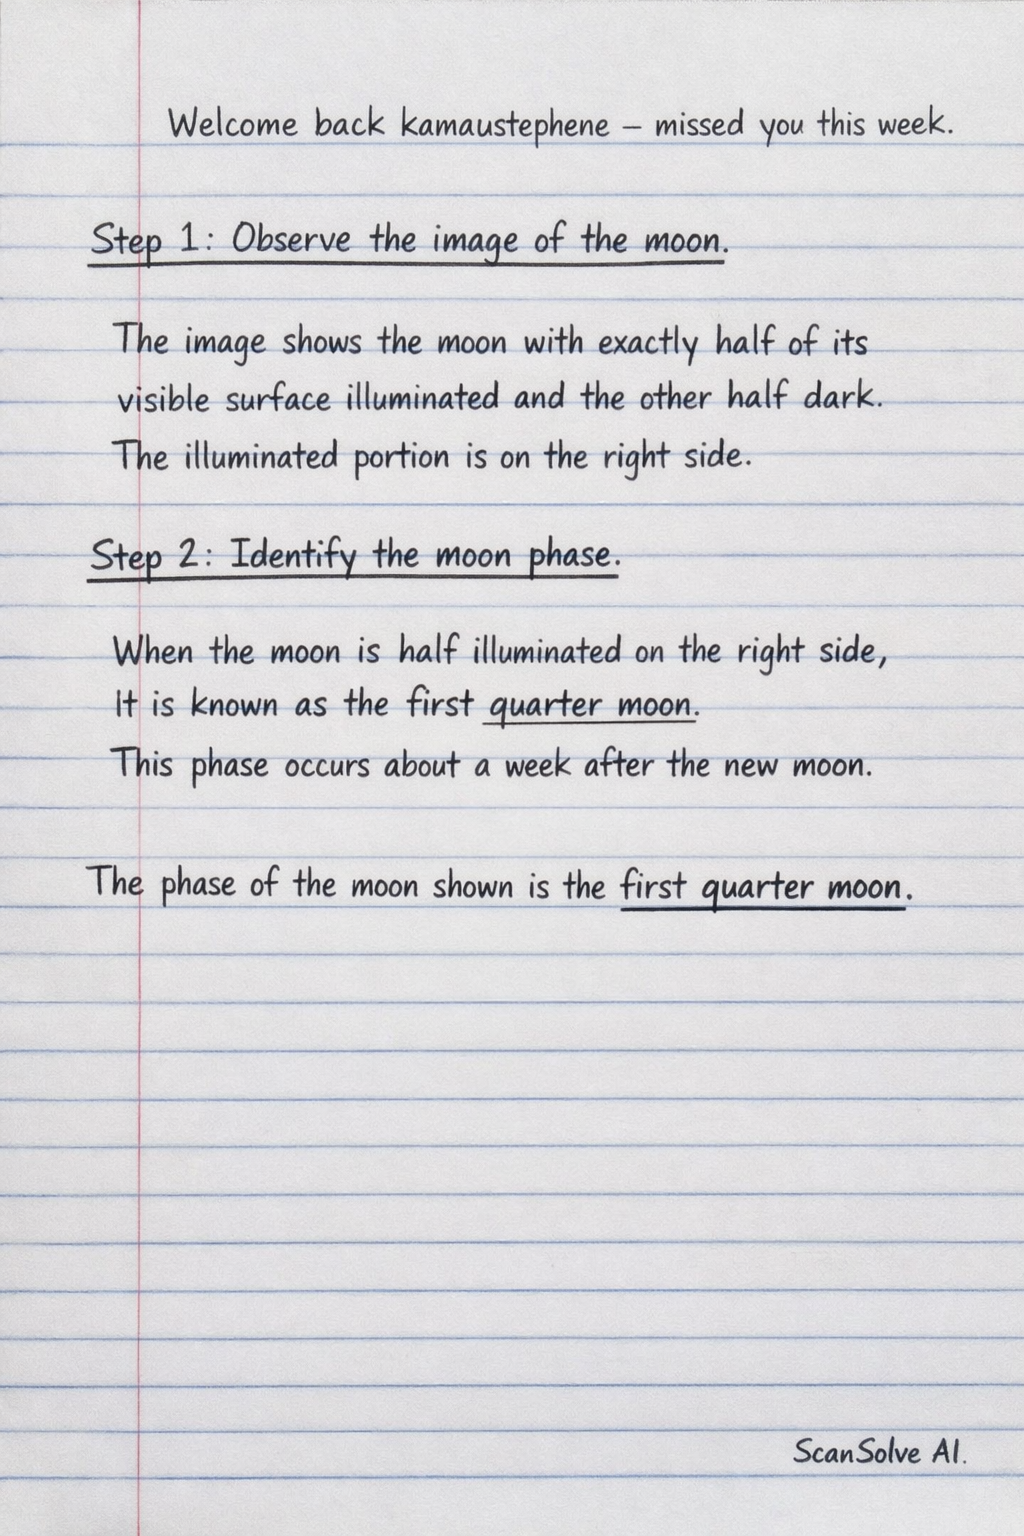 Welcome back kamaustephene – missed you this week.
Step 1: Observe the image of the moon.
The image shows the moon with exactly half of its
visible surface illuminated and the other half dark.
The illuminated portion is on the right side.
Step 2: Identify the moon phase.
When the moon is half illuminated on the right side,
It is known as the first quarter moon.
This phase occurs about a week after the new moon.
The phase of the moon shown is the first quarter moon.
ScanSolve AI.